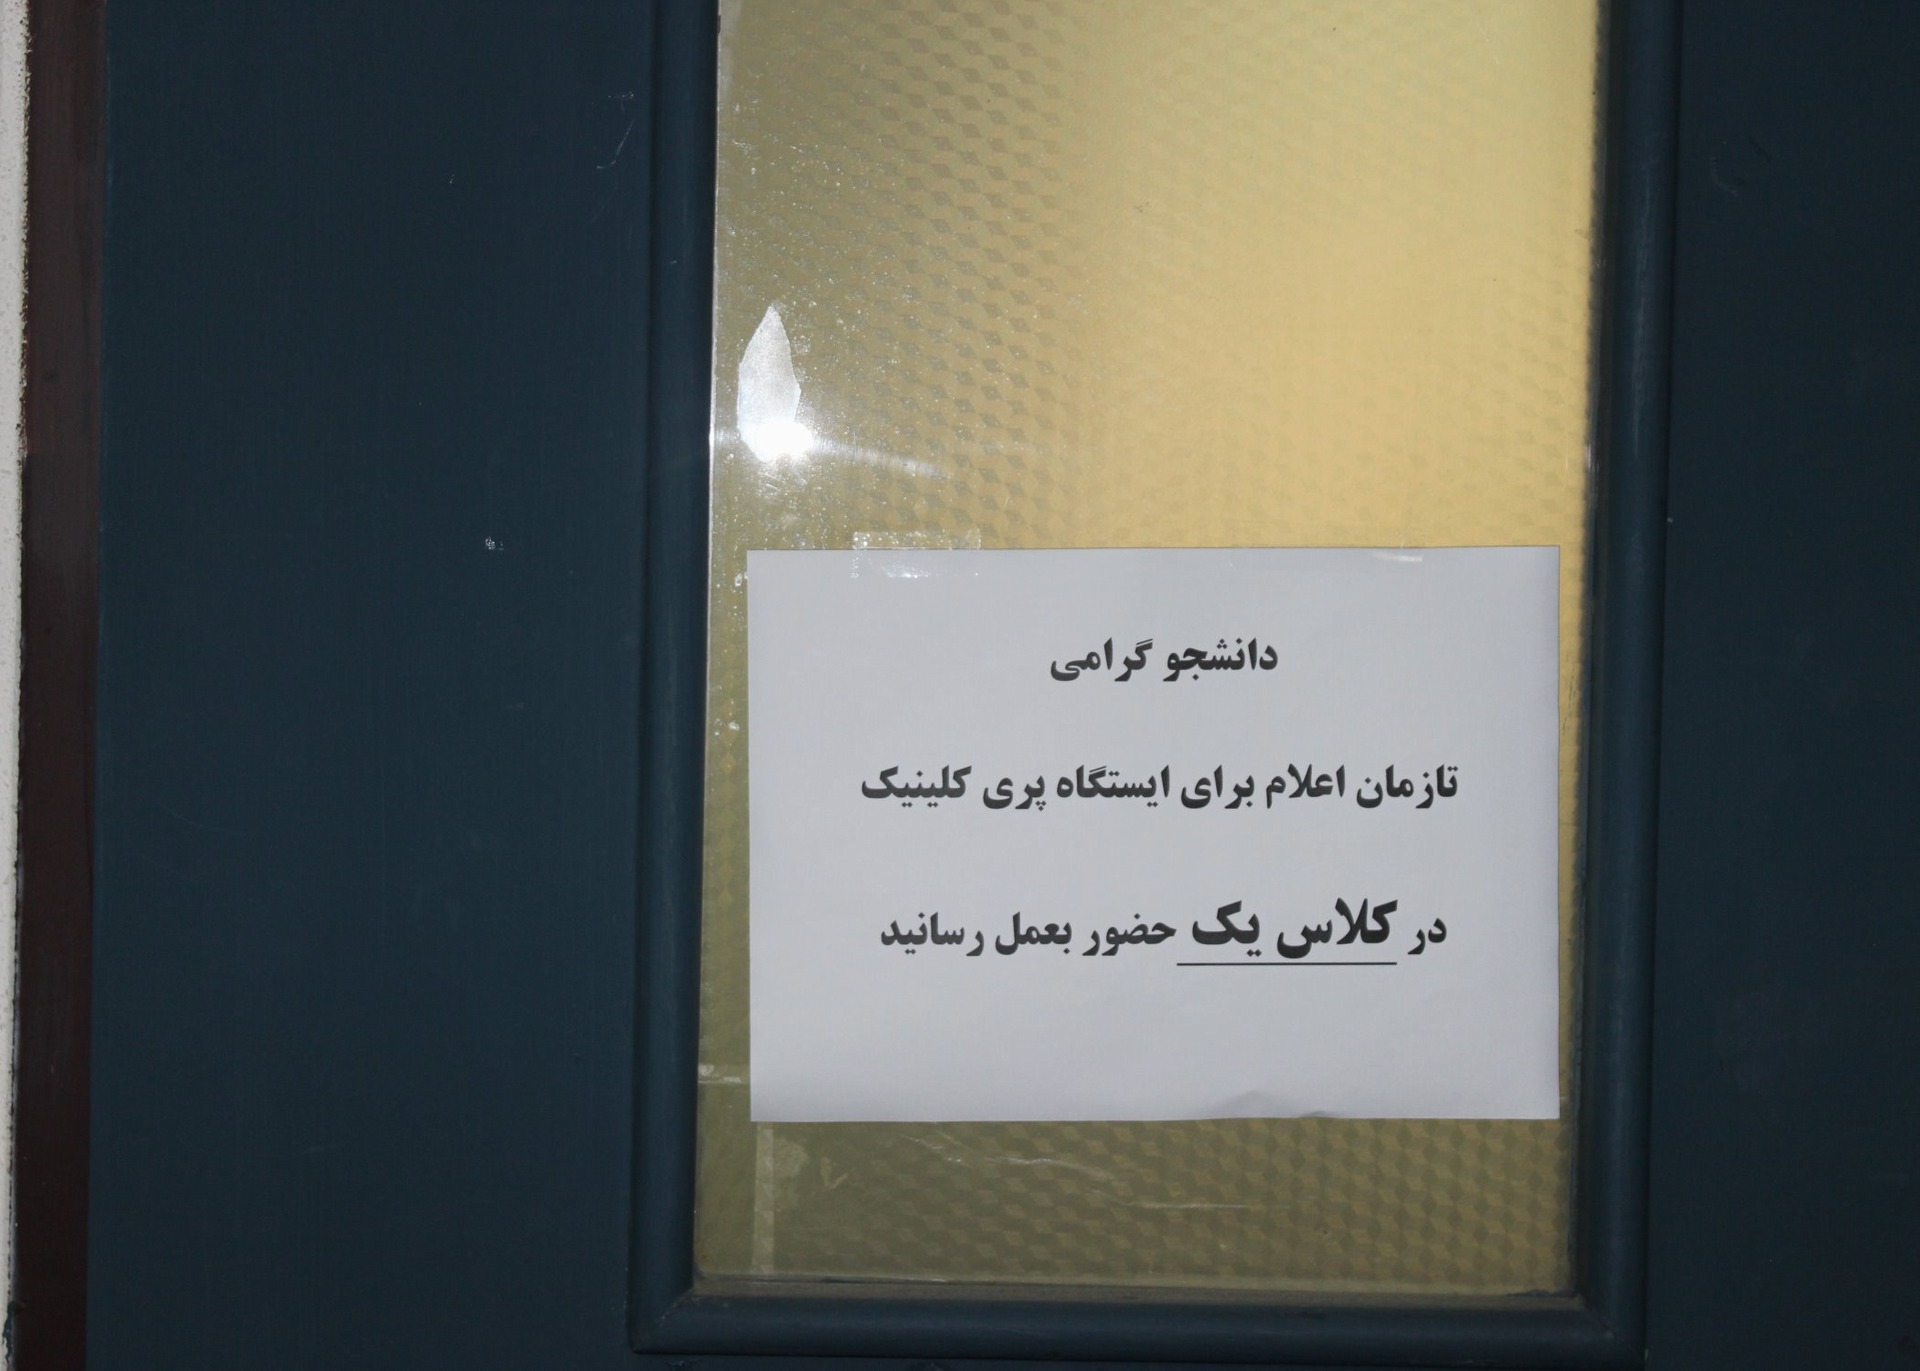 دانشجو گرامی
تازمان اعلام برای ایستگاه پری کلینیک
در کلاس یک حضور بعمل رسانید